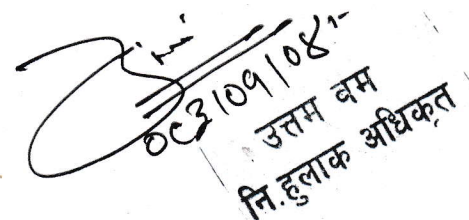 ०८३।०१।०४
उत्तम वम
नि.हुलाक अधिकृत